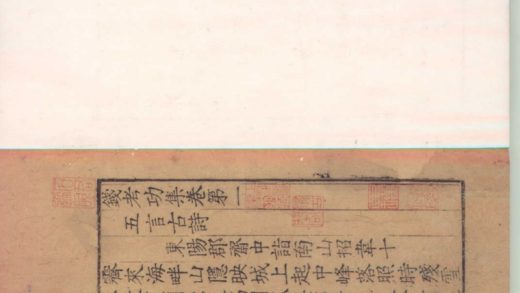 錢考功集卷第一
五言古詩
東陽郡齋中詣南山招韋十
霽來海畔山隱映城上起中峰落照時殘雪